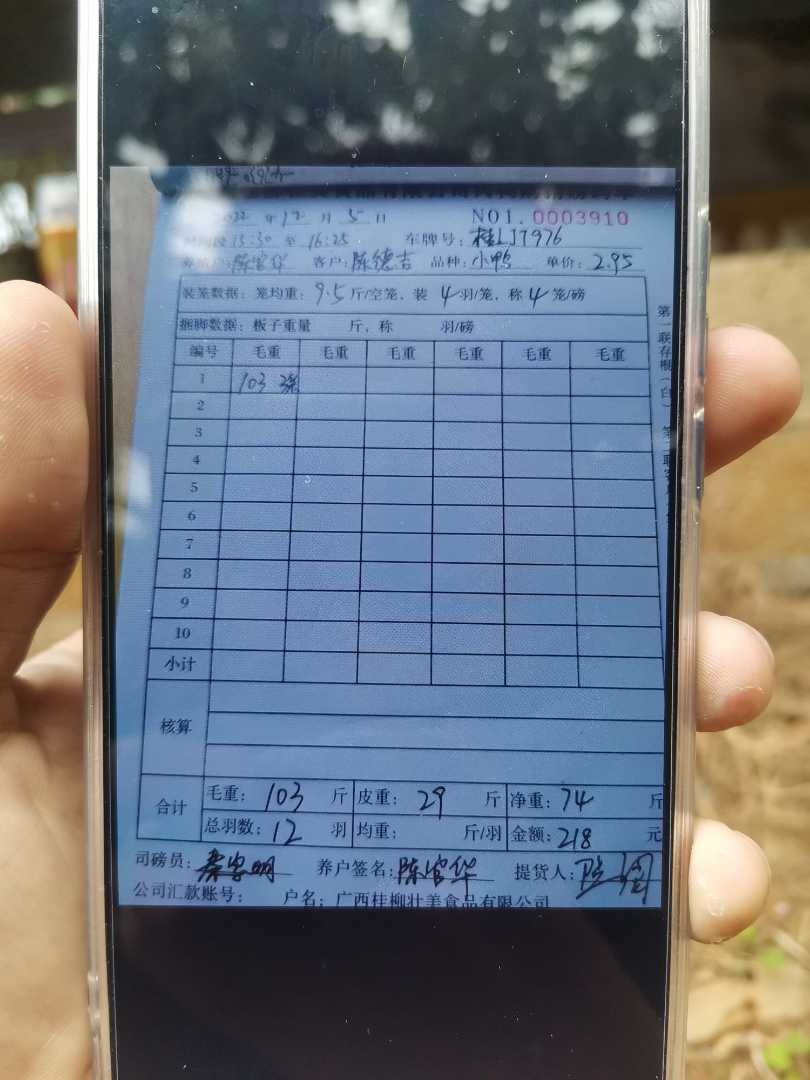 2022年12月5日 NO1.0003910
13:30至16:25 车牌号:桂LJ7976
养殖户:陈官华 客户:陈德吉 品种:小鸭 单价:2.95
装笼数据:笼均重:9.5斤/空笼,装4羽/笼,称4笼/磅
捆脚数据:板子重量 斤,称 羽/磅
编号 毛重 毛重 毛重 毛重 毛重 毛重
1 103
2
3
4
5
6
7
8
9
10
小计
核算
合计 毛重:103斤 皮重:29斤 净重:74斤
总羽数:12羽 均重: 斤/羽 金额:218元
司磅员: 养户签名:陈官华 提货人:
公司汇款账号: 户名:广西桂柳壮美食品有限公司
第一联存根(白)